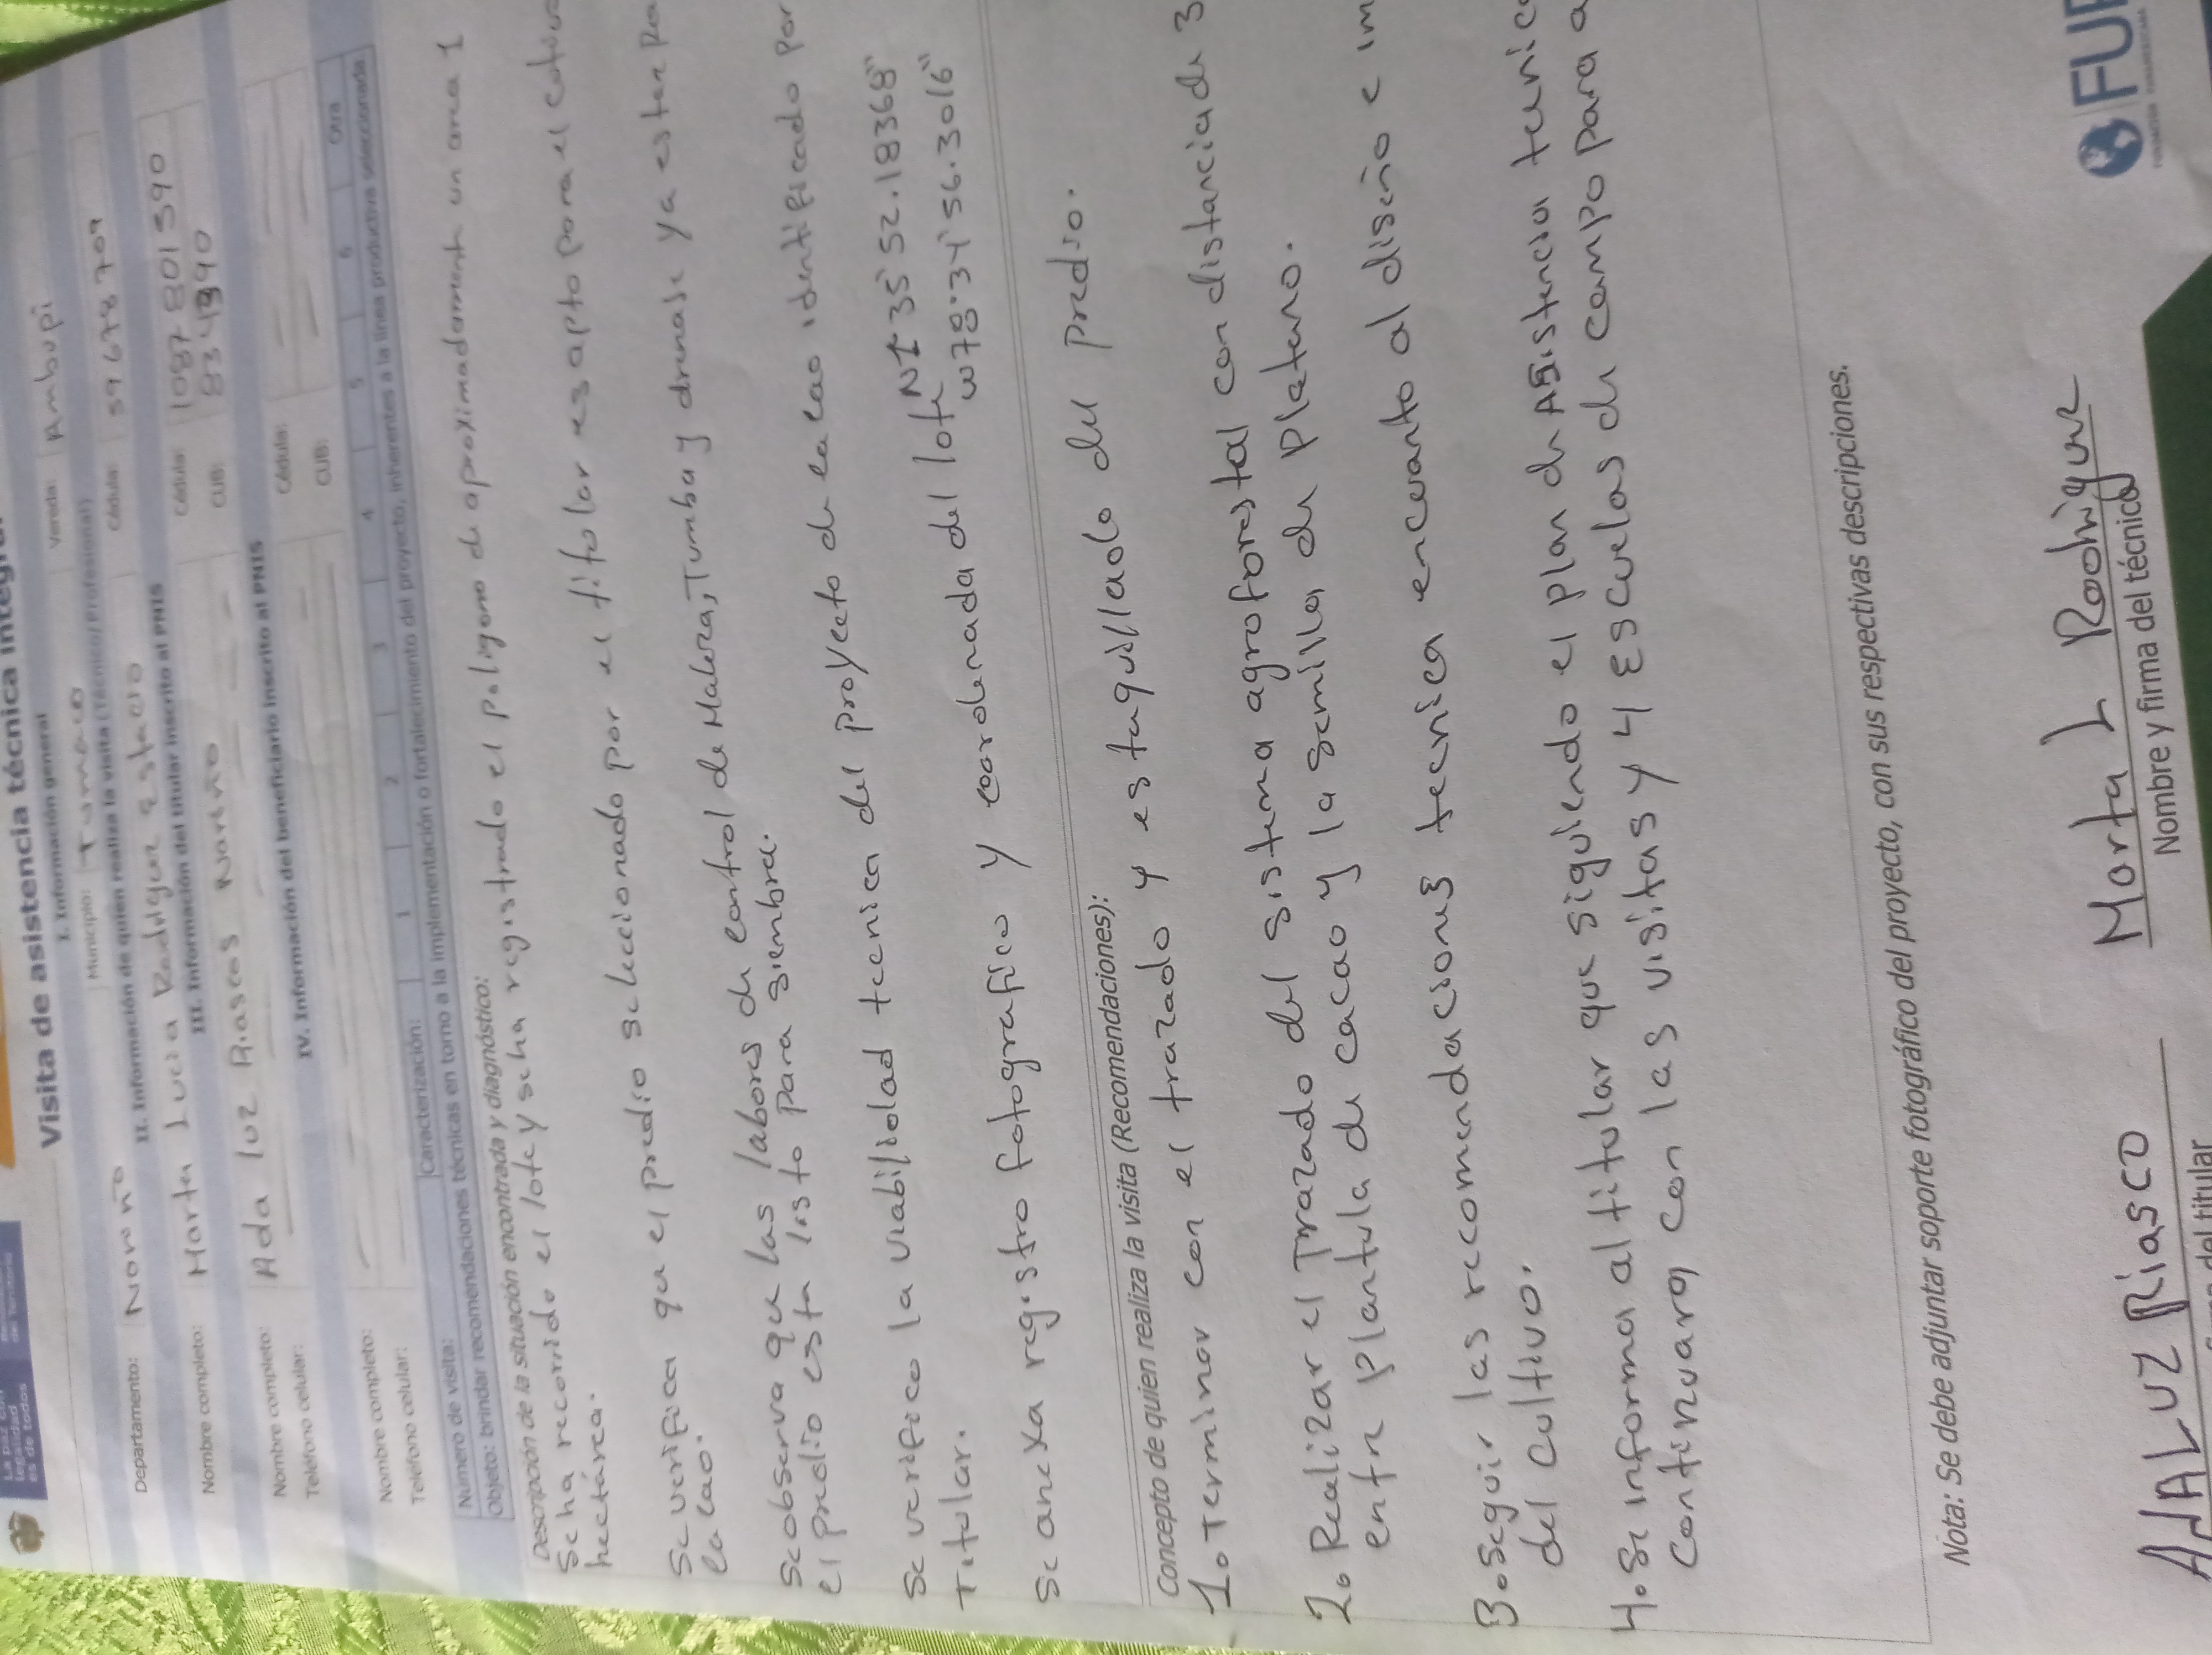 La paz con
legalidad
es de todos
Visita de asistencia técnica integral
I. Información general
Departamento: Nariño Municipio: Tumaco Vereda: Ambupi
II. Información de quién realiza la visita (Técnico/Profesional)
Nombre completo: Marta Lucia Rodrigue Estacio Cédula: 59678709
III. Información del titular inscrito al PNIS
Nombre completo: Ada luz Riascos Nariño Cédula: 1087801590
Teléfono celular: CUB:
IV. Información del beneficiario inscrito al PNIS
Nombre completo: Cédula:
Teléfono celular: CUB:
Número de visita: Caracterización: 1 2 3 4 5 6 Otra
Objeto: brindar recomendaciones técnicas en torno a la implementación o fortalecimiento del proyecto, inherentes a la línea productiva seleccionada.
Descripción de la situación encontrada y diagnóstico:
Se ha recorrido el lote y se ha registrado el poligono de aproximadamente un area 1
hectárea.
Se verifica que el predio seleccionado por el titolar es apto para el
cacao.
Se observa que las labores de control de Maleza, Tumba y drenaje ya esten
el predio esta listo para siembra.
Se verifico la viabilidad tecnica del proyecto de cacao identificado por
Titular.
N1°35'52.18368"
Se anexa registro fotografico y cordenada del lote W78°34'56.3016"
Concepto de quien realiza la visita (Recomendaciones):
1. Terminar con el trazado y estaquillado del predio.
2. Realizar el Trazado del sistema agroforestal con distancia de 3
entre plantula de cacao y la semilla de platano.
3. Seguir las recomendaciones tecnica encuanto al diseño e im
del cultivo.
4. Se informa al titular que siguiendo el plan de Asistencia tecnic
continuara con las visitas y 4 Escuelas de campo para a
Nota: Se debe adjuntar soporte fotográfico del proyecto, con sus respectivas descripciones.
AdALUZ Riasco
del titular
Marta L Rodrigue
Nombre y firma del técnico